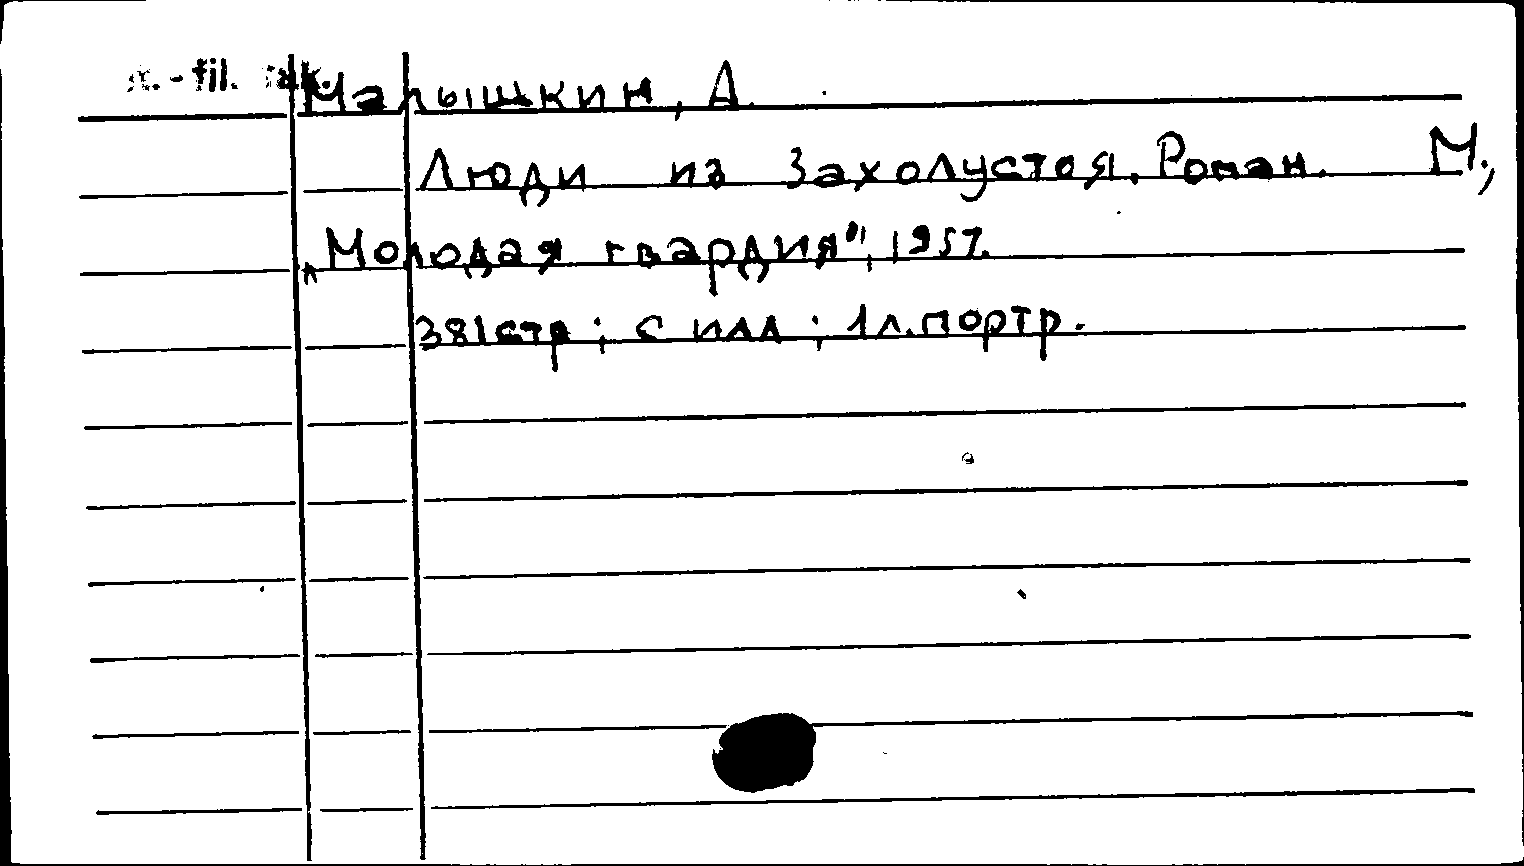 -fil.
Малышкин, А.
Люди из захолустоя. Роман. М.,
„Молодая гвардия", 1957.
381стр; с илл; 1л.портр.